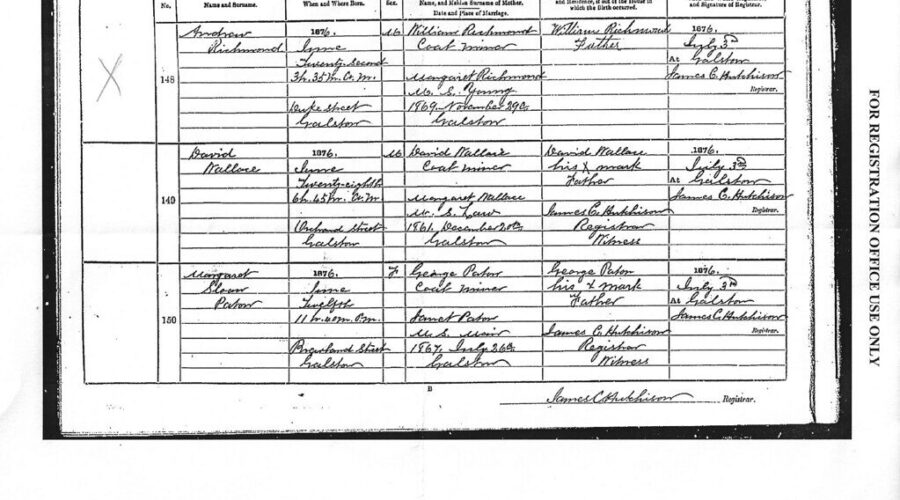 No. Name and Surname. When and Where Born. Sex. Name, and Maiden Surname of Mother. and Residence, if out of the House in and Signature of Registrar.
Date and Place of Marriage. which the Birth occurred.
148
Andrew
Richmond
1876.
June
Twenty Second
3h. 35m. A.M.
Duke Street
Galston
M
William Richmond
Coal Miner
Margaret Richmond
M. S. Young
1869. November 29th
Galston
William Richmond
Father
1876.
July 3rd
At Galston
James C. Hutchison
Registrar.
149
David
Wallace
1876.
June
Twenty-eighth
6h. 45m. A.M.
Orchard Street
Galston
M
David Wallace
Coal Miner
Margaret Wallace
M. S. Law
1861. December 20th
Galston
David Wallace
his x mark
Father
James C. Hutchison
Registrar
Witness
1876.
July 3rd
At Galston
James C. Hutchison
Registrar.
150
Margaret
Sloan
Paton
1876.
June
Twelfth
11h. 40m. P.m.
Street
Galston
F
George Paton
Coal Miner
Janet Paton
M. S. Mair
1867. July 26th
Galston
George Paton
his x mark
Father
James C. Hutchison
Registrar
Witness
1876.
July 3rd
At Galston
James C. Hutchison
Registrar.
B
James C Hutchison Registrar.
FOR REGISTRATION OFFICE USE ONLY